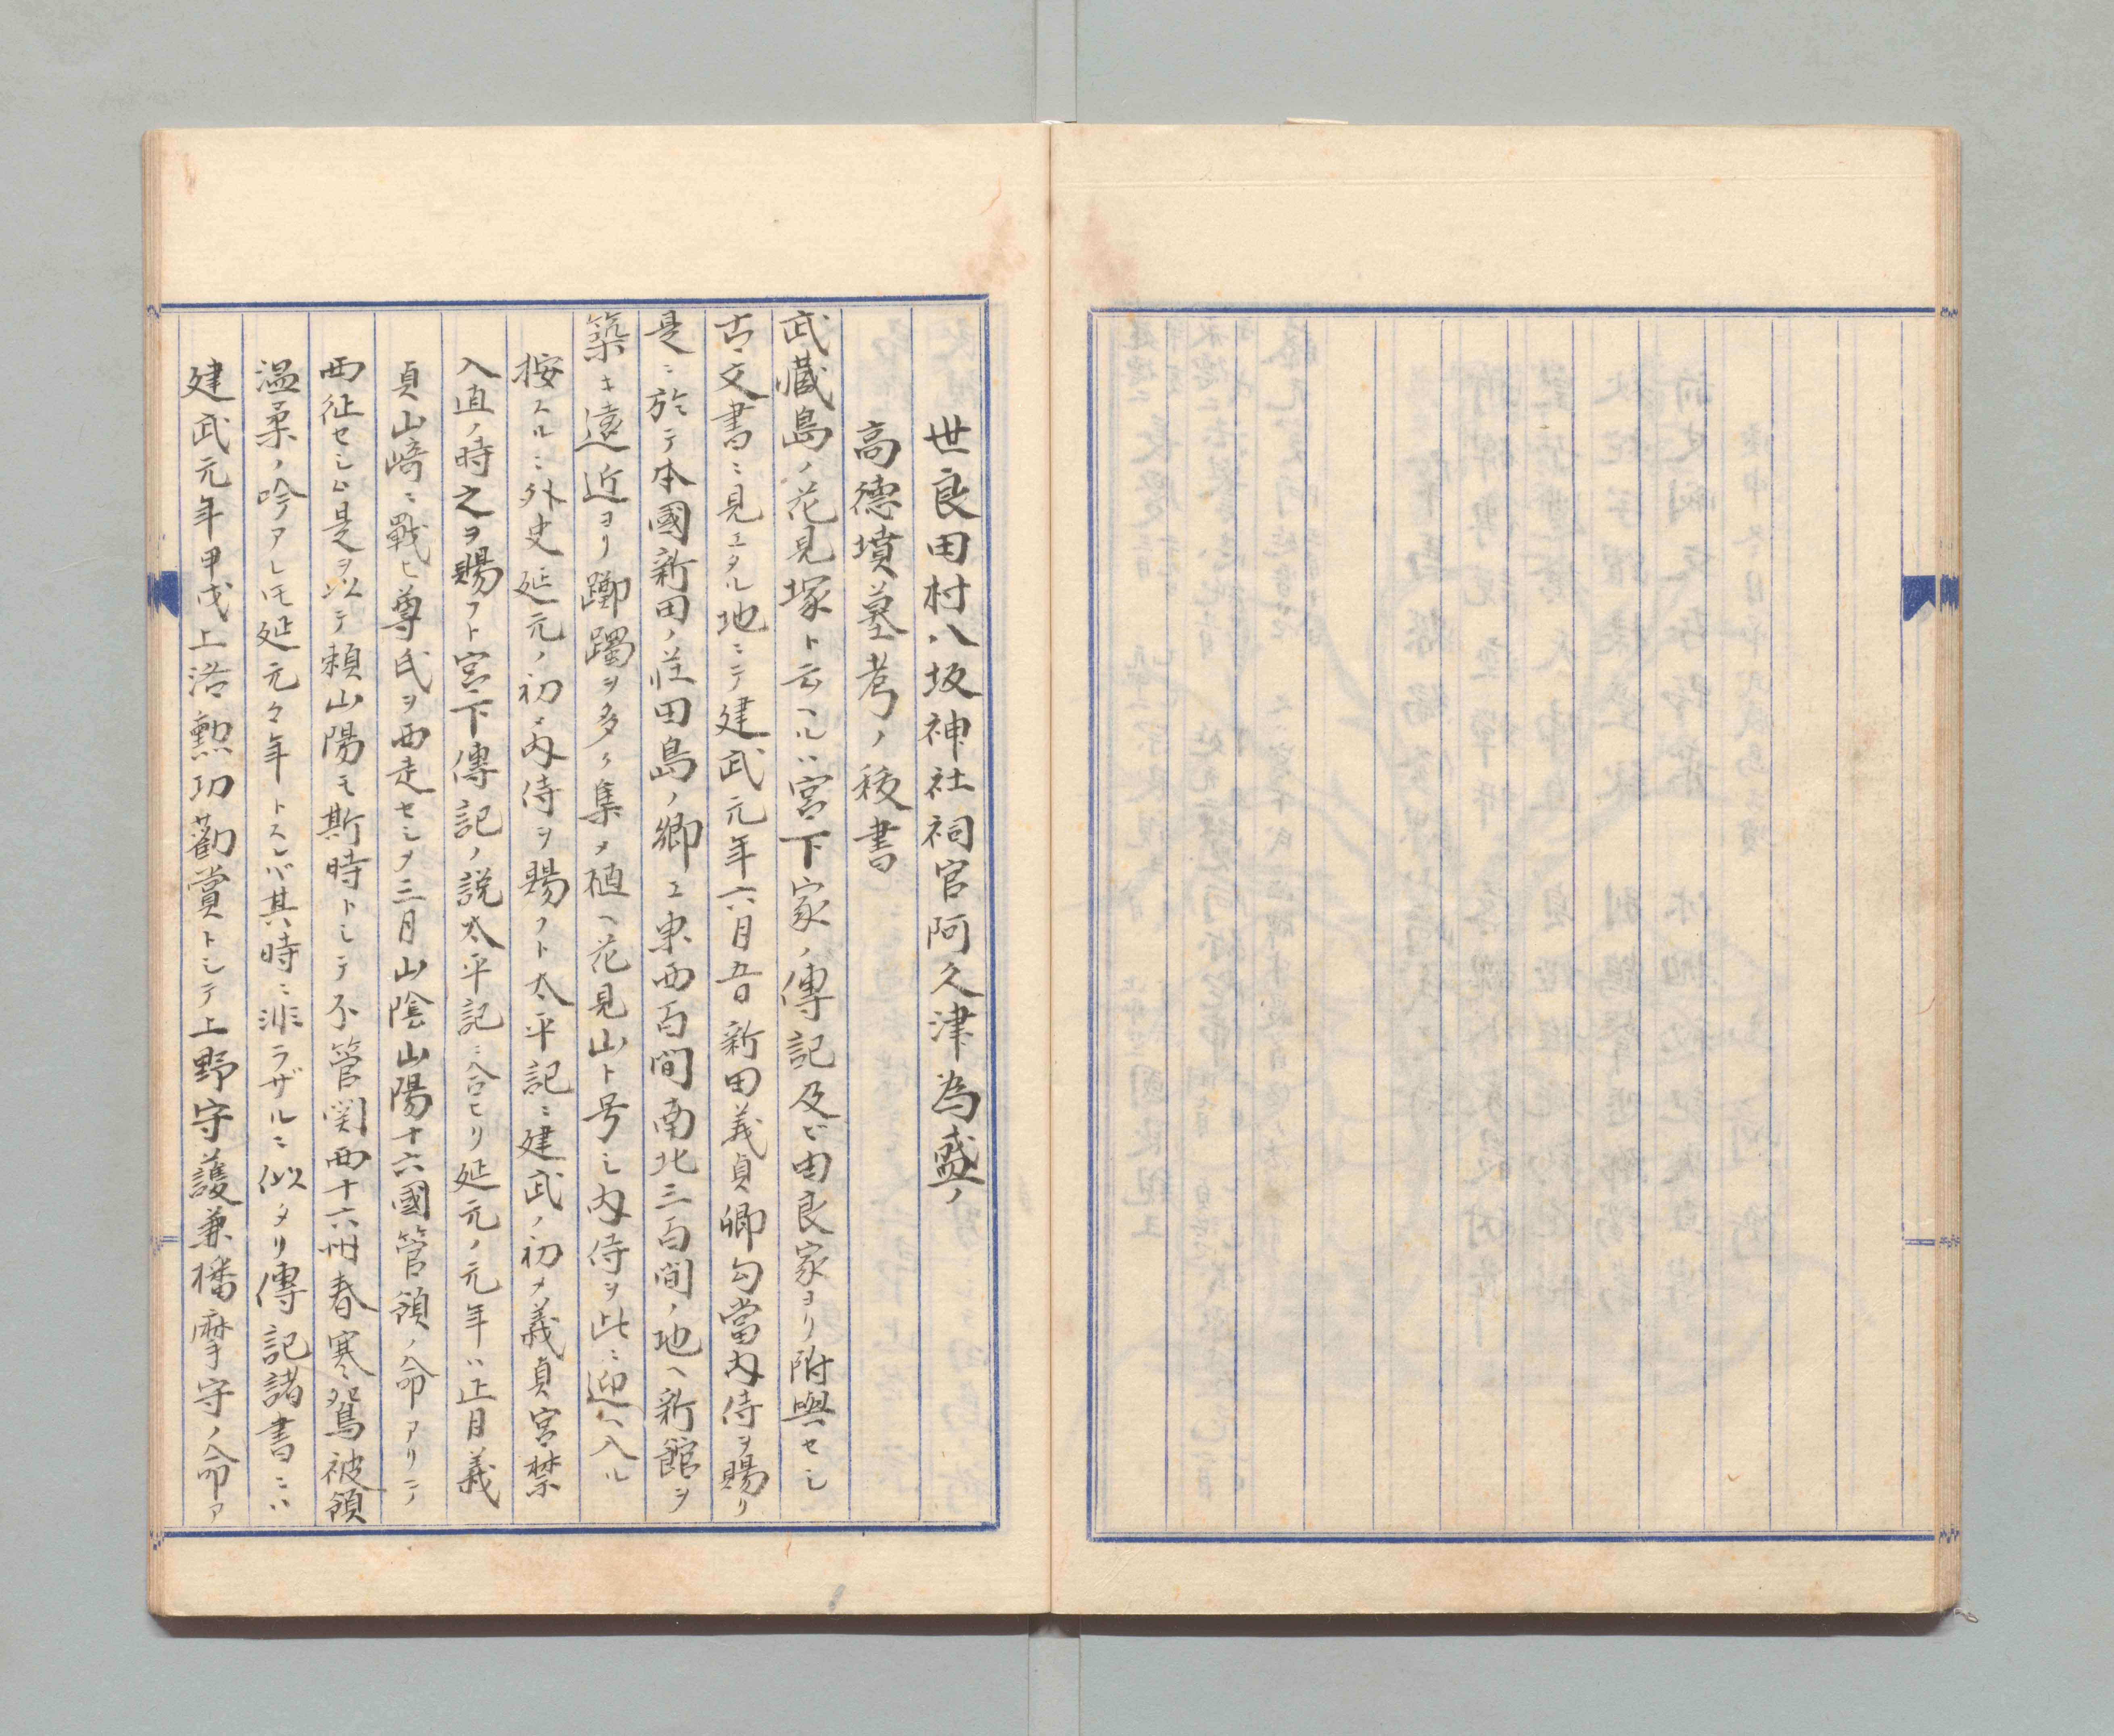 世良田村八坂神社祠官阿久津為盛ノ
高德墳墓考ノ後書
武藏島ノ花見塚ト云ヘルハ宮下家ノ傳記及ビ由良家ヨリ附與セシ
古文書ニ見エタル地ニテ建武元年六月五日新田義貞卿勾當内侍ヲ賜リ
是ニ於テ本國新田ノ荘田島ノ郷エ東西百間南北三百間ノ地ヘ新館ヲ
築キ遠近ヨリ躑躅ヲ多ク集メ植ヘ花見山ト号シ内侍ヲ此ニ迎ヘ入ル
按スルニ外史延元ノ初メ内侍ヲ賜フト太平記ニ建武ノ初メ義貞宮禁
入直ノ時之ヲ賜フト宮下傳記ノ説太平記ニ合ヒリ延元ノ元年ハ正月義
貞山﨑ニ戰ヒ尊氏ヲ西走セシメ三月山陰山陽十六國管領ノ命アリテ
西征セシム是ヲ以テ頼山陽モ斯時トシテ不管関西十六州春寒鴛被領
温柔ノ吟アレ𪜈延元々年トスレバ其時ニ非ラザルニ似タリ傳記諸書ニハ
建武元年甲戌上洛勲功勸賞トシテ上野守護兼播摩守ノ命ア